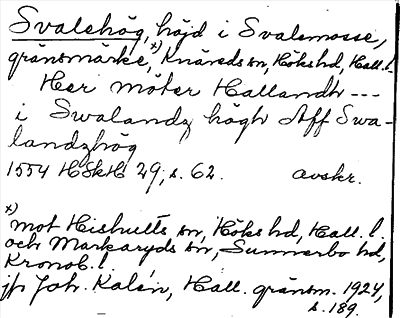 Svalehög, höjd i Svalemosse,
gränsmärke,x) Knäreds sn, Höks hd, Hall. l.
Her möter Hallandh ---
i Swalandz högh Aff Swa-
landzhög
1554 HSkH 29, s. 62. avskr.
x) mot Hishults sn, Höks hd, Hall. l.
och Markaryds sn, Sunnerbo hd,
Kronob. l.
jfr Joh. Kalén, Hall. gränsm. 1924,
s. 189.